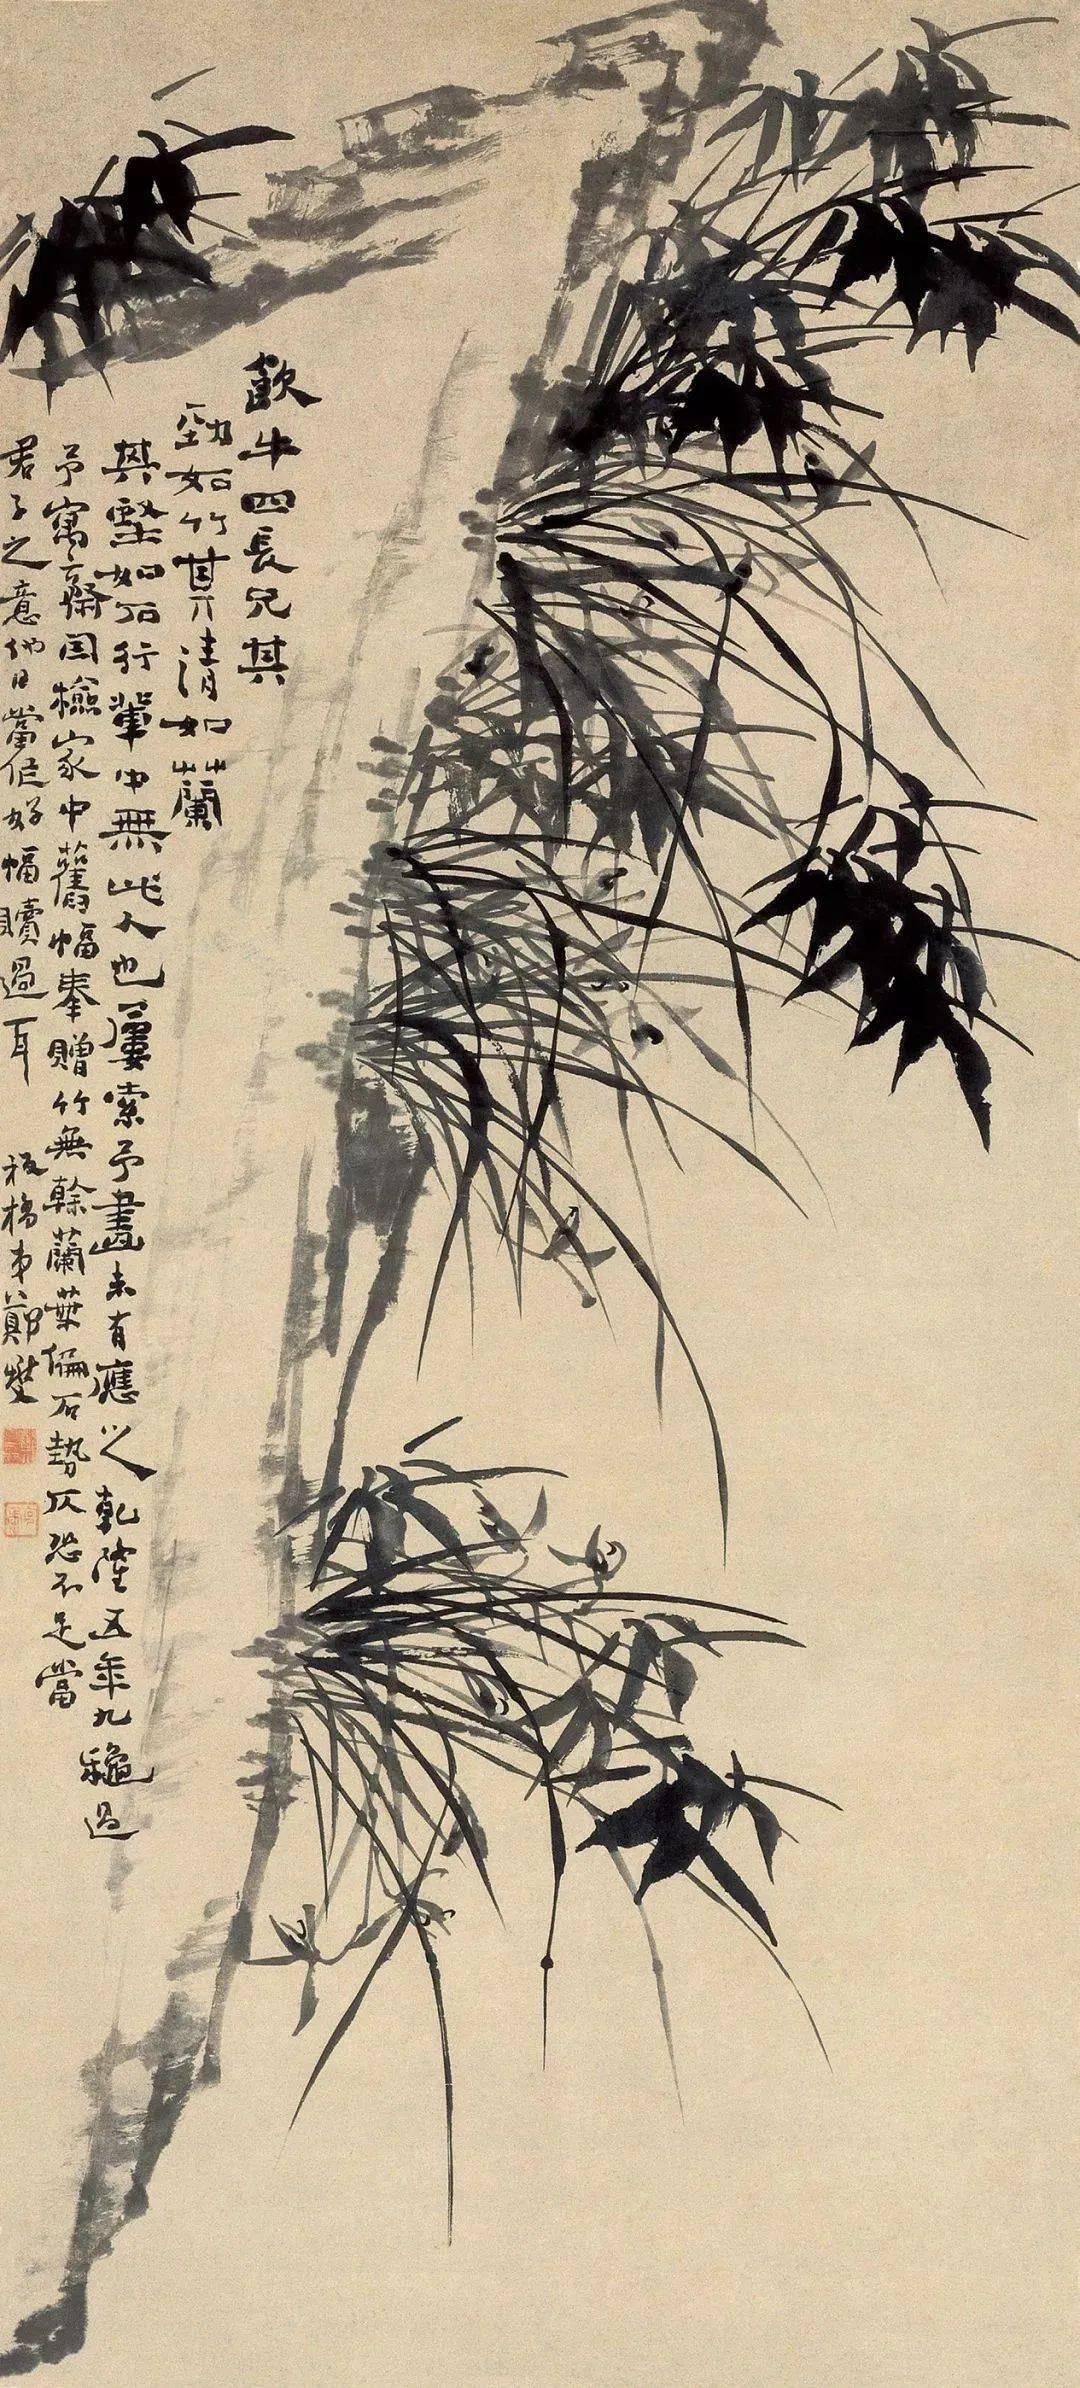 飲牛四長兄其
勁如竹其清如蘭
其堅如石行輩中無此人也屢索予畫未有應之乾隆五年九穐過
予寓齋因檢家中舊幅奉贈竹無榦蘭葉偏石勢仄恐不足當
君子之意他日當作好幅贖過耳 板橋弟鄭燮